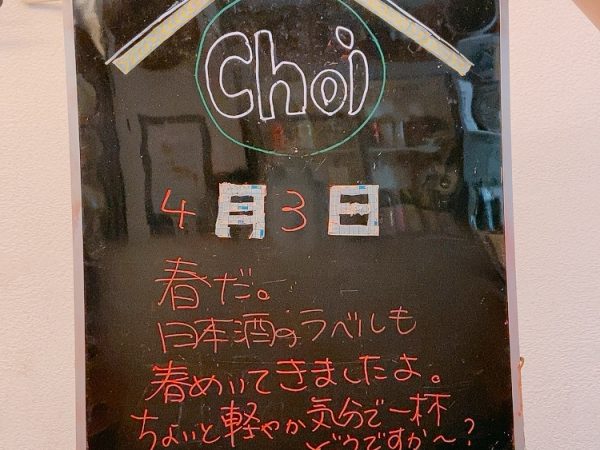 Choi
4月3日
春だ。
日本酒のラベルも
春めいてきましたよ。
ちょいと軽やか気分で一杯
どうですか〜?